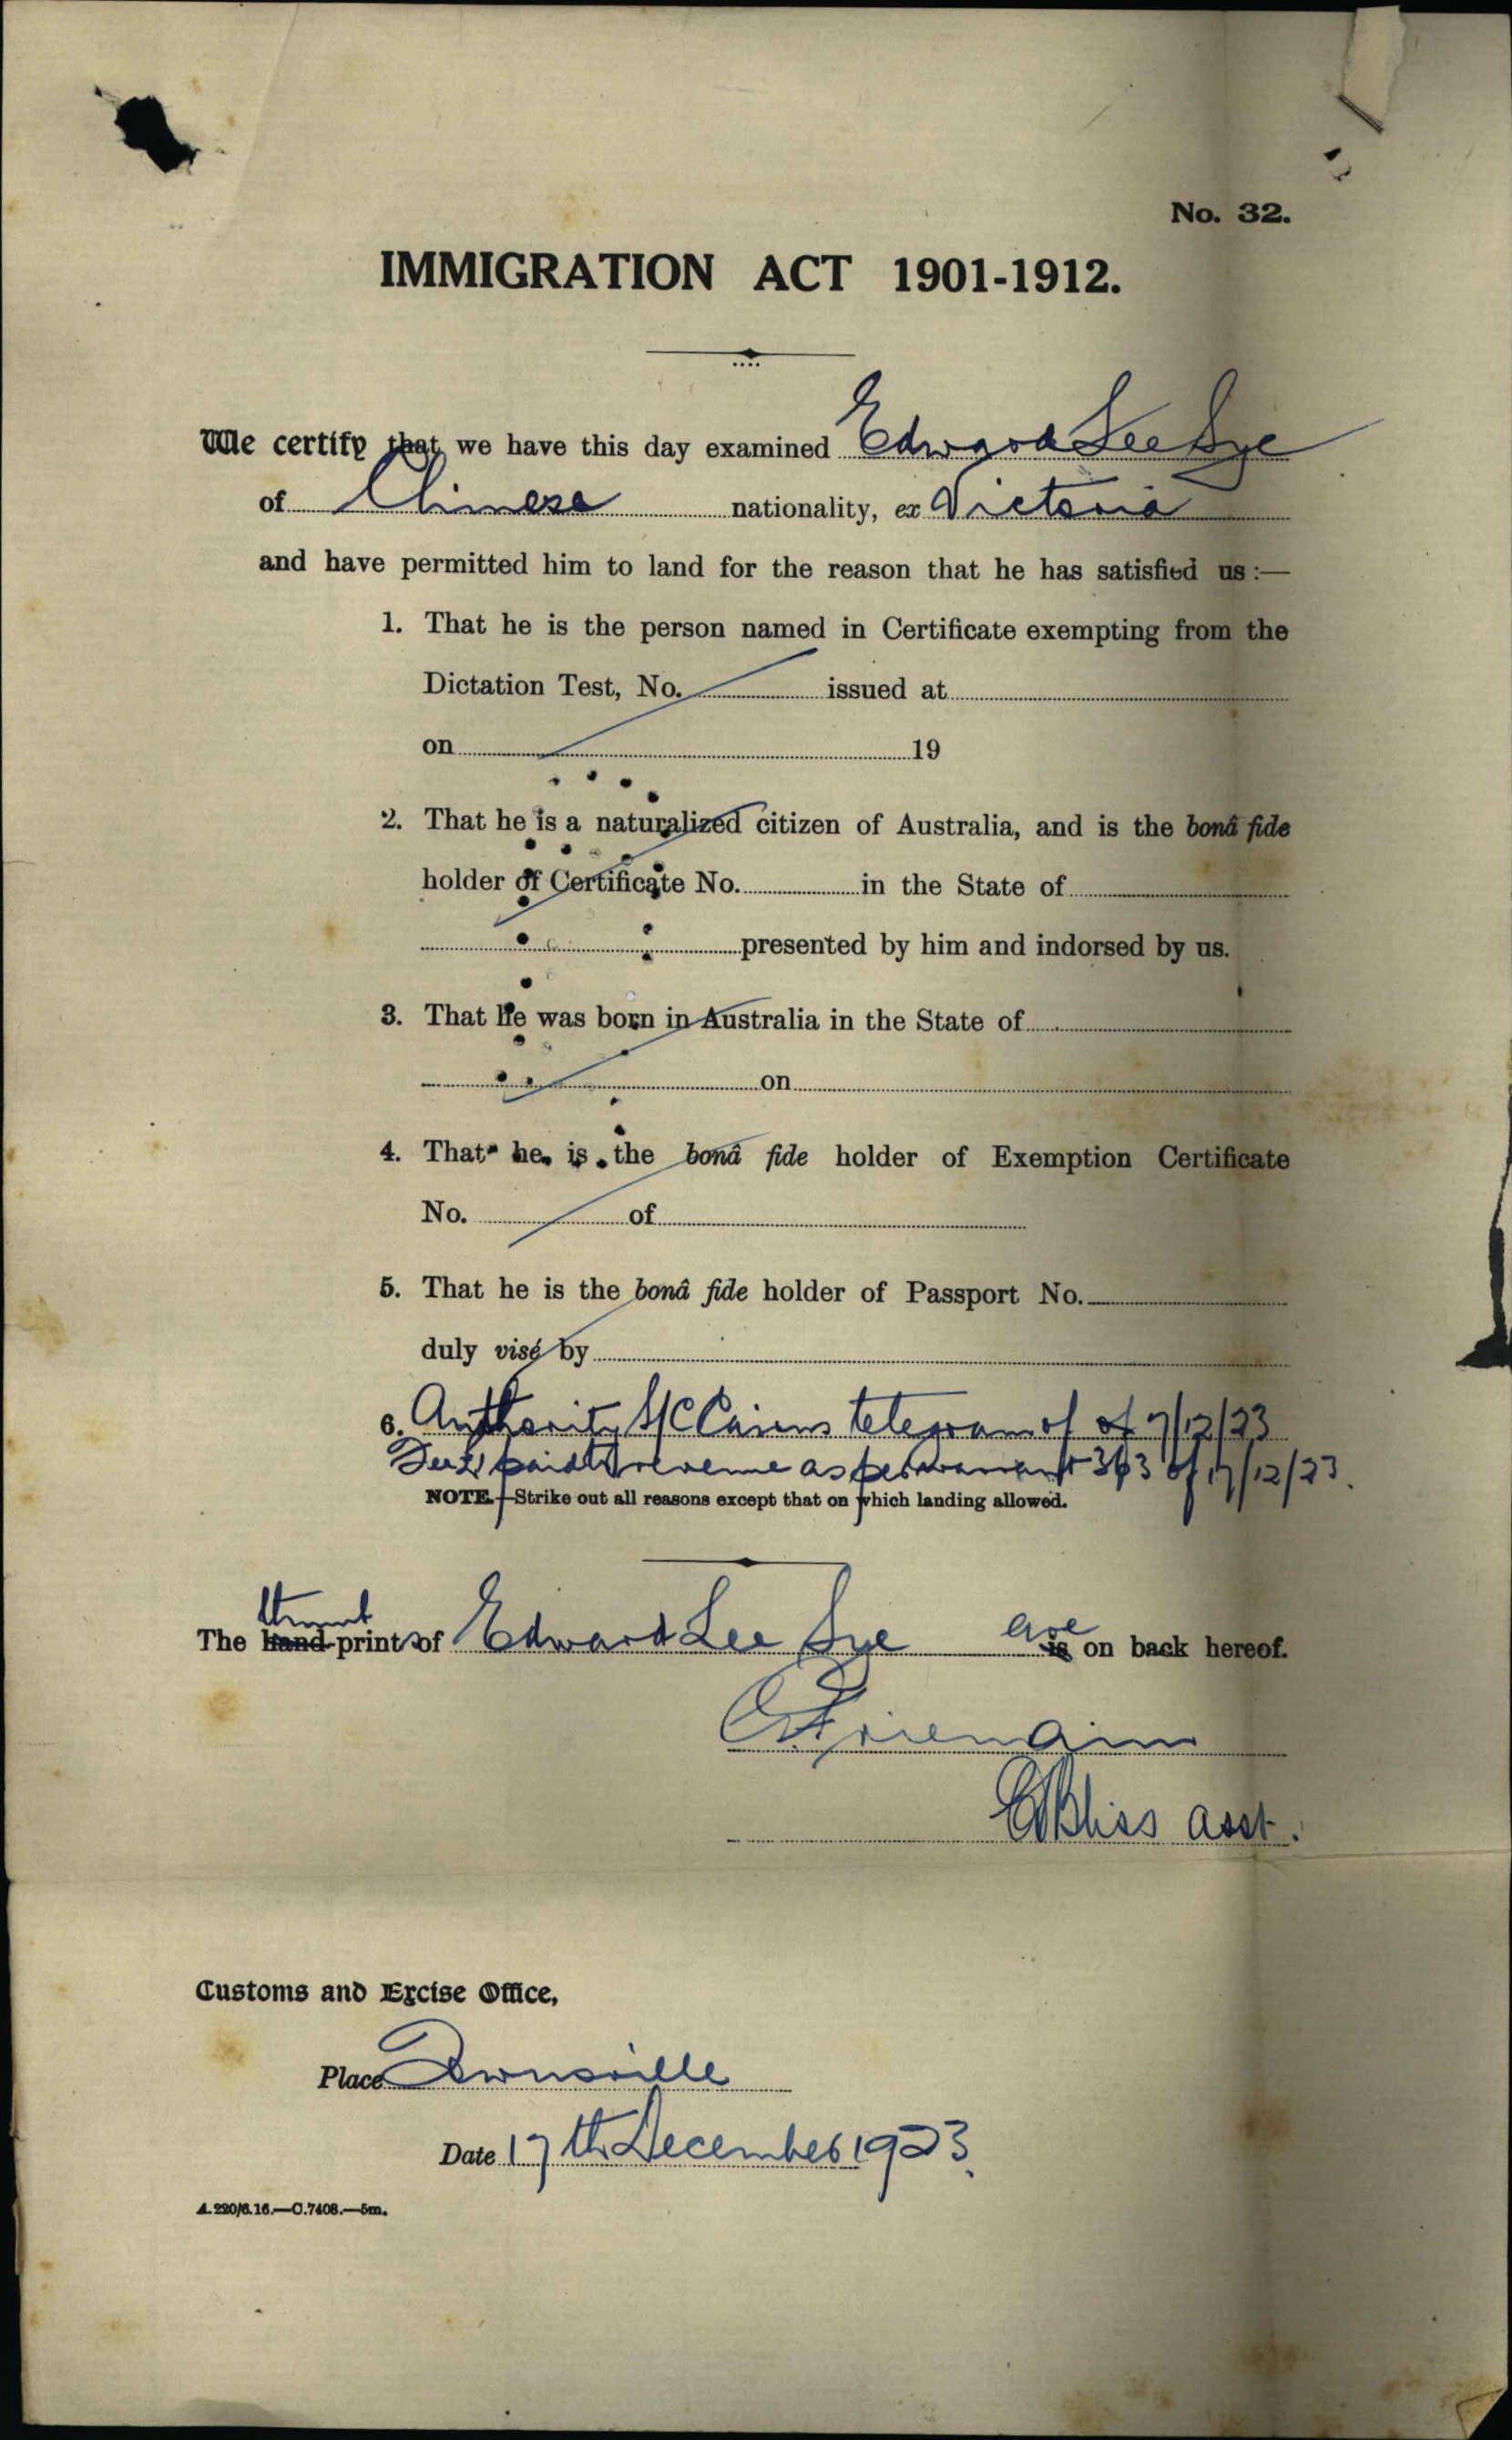 No. 32.
IMMIGRATION ACT 1901-1912.
We certify that we have this day examined Edward Lee Sye
of Chinese nationality, ex Victoria
and have permitted him to land for the reason that he has satisfied us :—
1. That he is the person named in Certificate exempting from the
Dictation Test, No. issued at
on 19
2. That he is a naturalized citizen of Australia, and is the bonâ fide
holder of Certificate No. in the State of
presented by him and indorsed by us.
3. That he was born in Australia in the State of
on
4. That he is the bonâ fide holder of Exemption Certificate
No. of
5. That he is the bonâ fide holder of Passport No.
duly visé by
6. Authority S/C Cairns telegram of of 7/12/23
paid to revenue as per warrant 363 of 17/12/23.
NOTE.—Strike out all reasons except that on which landing allowed.
thumb
The hand-prints of Edward Lee Sye are is on back hereof.
Bliss asst.
Customs and Excise Office,
Place Townsville
Date 17th December 1923.
A.220/6.16.—C.7408.—5m.